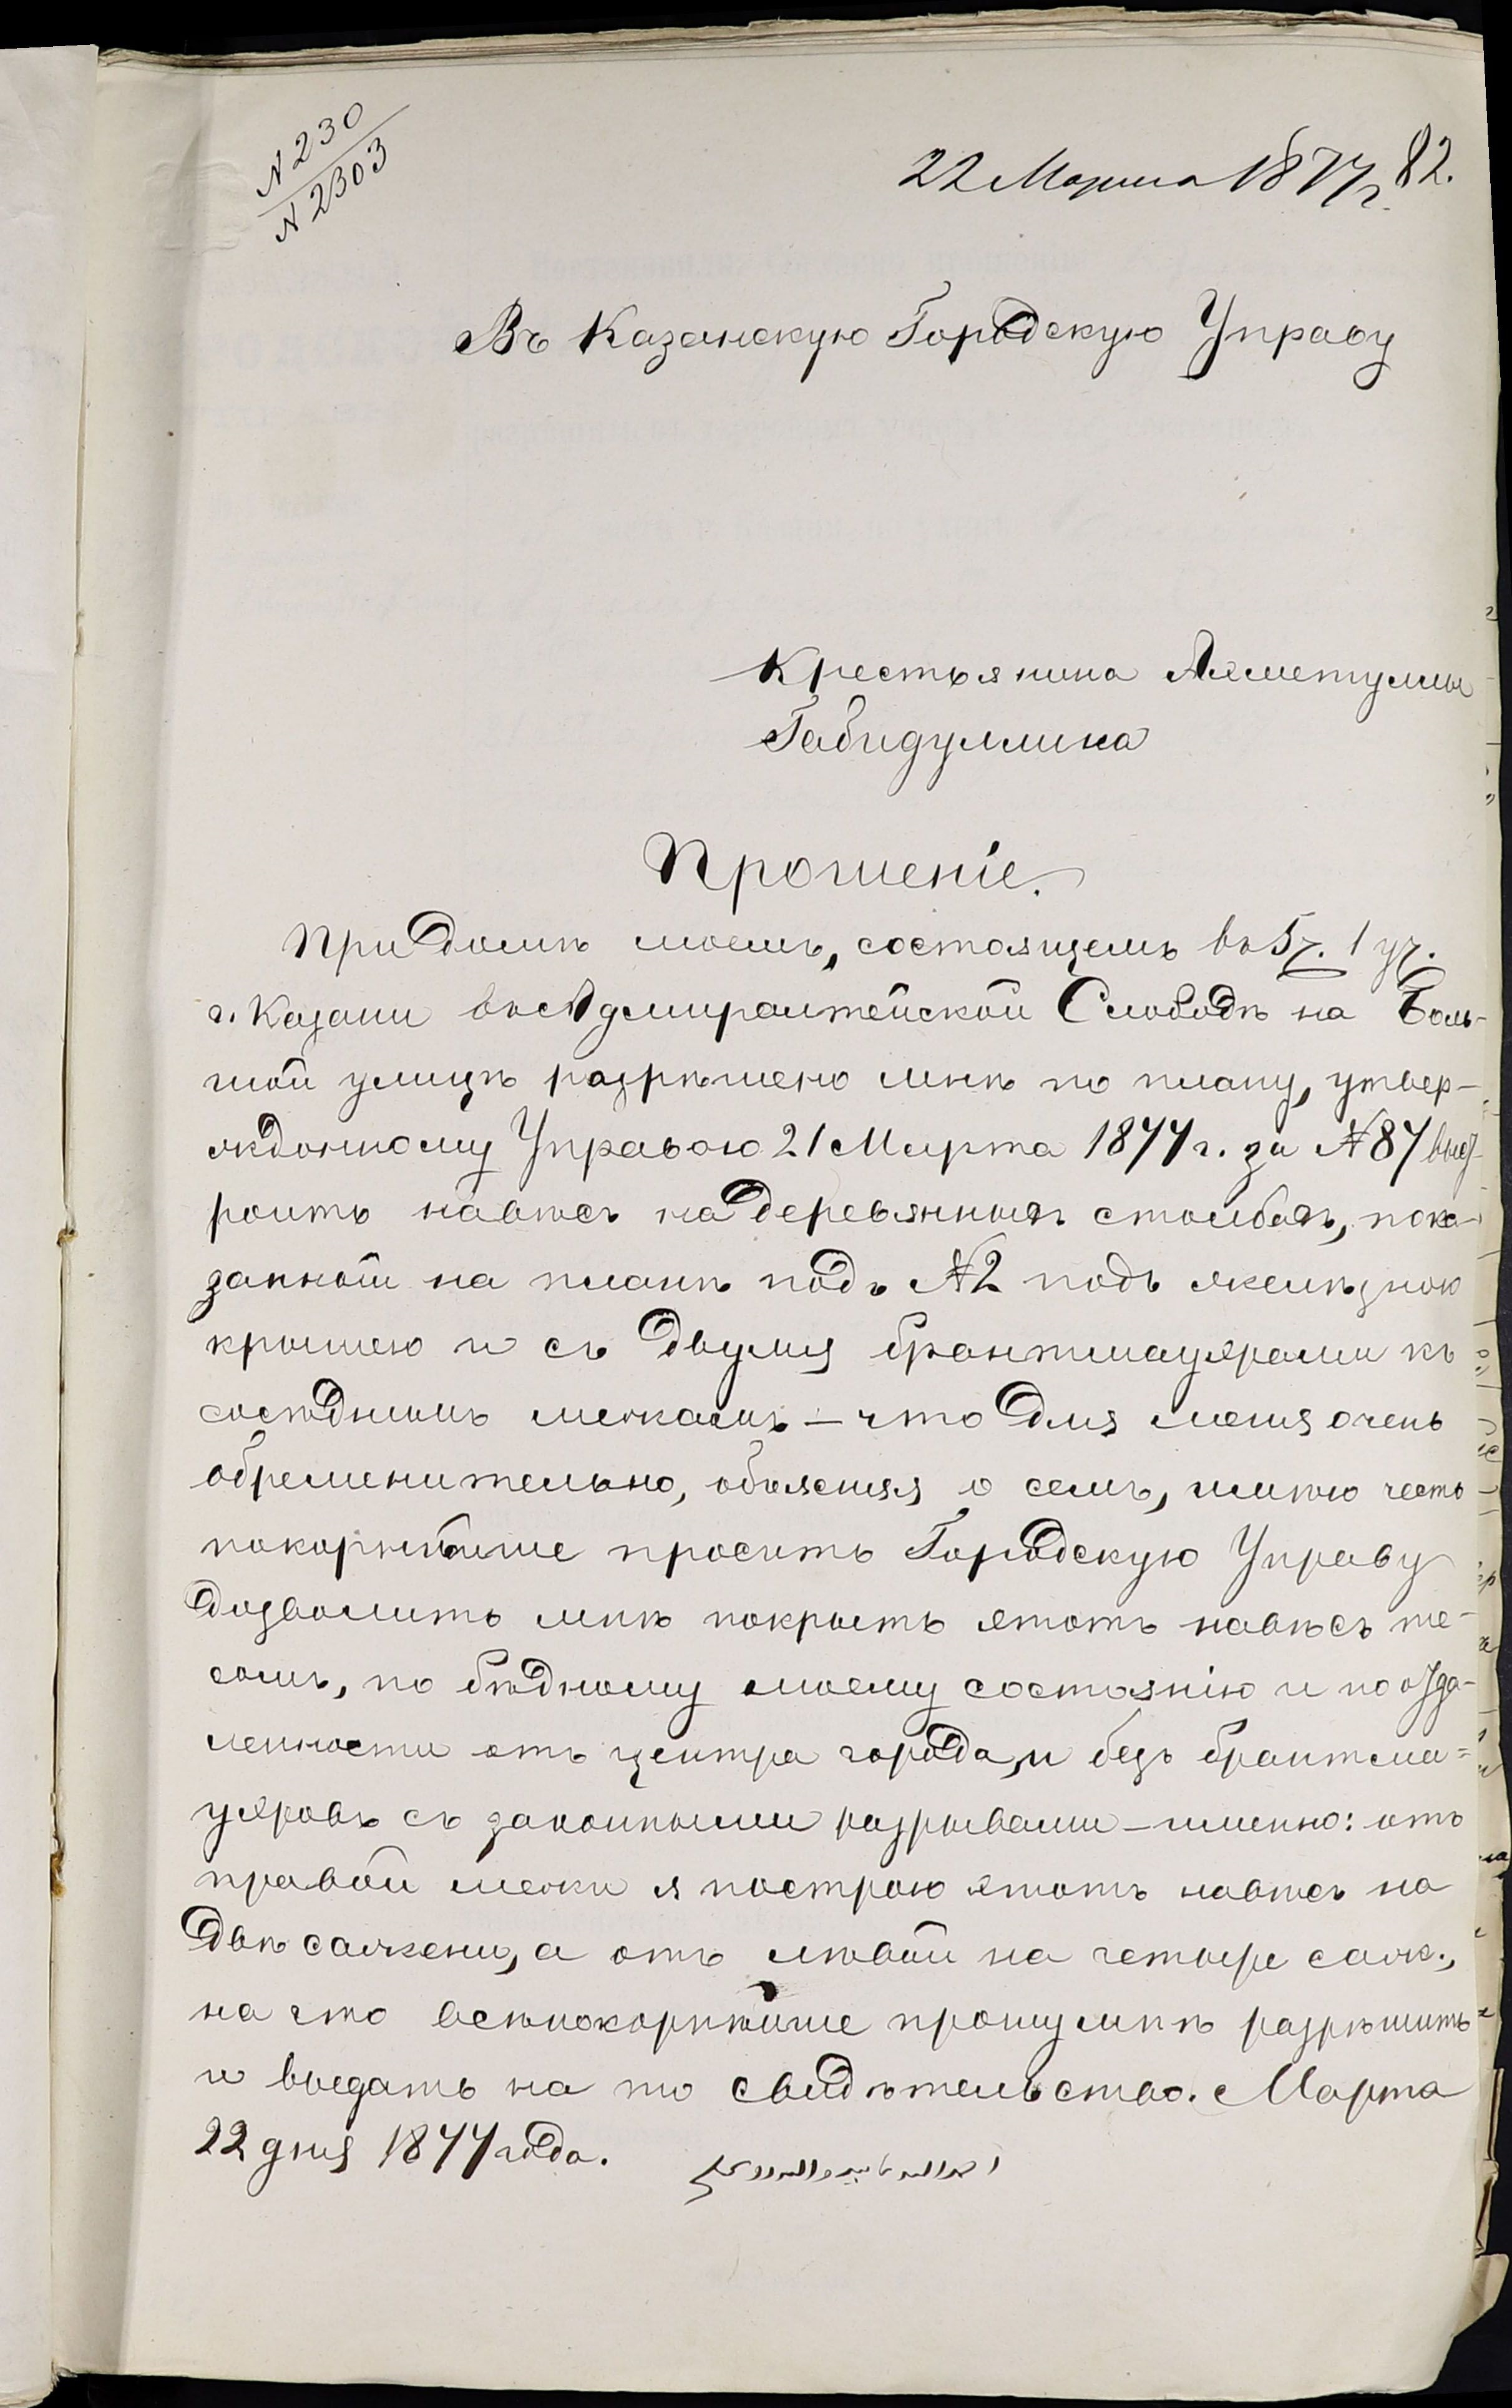 N 230
N 2303
22 Марта 1877 г. 82.
Въ Казанскую Городскую Управу
Крестьянина Ахметуллы
Габидуллина
Прошеніе.
При домѣ моемъ, состоящемъ въ 5 ч. 1 уч.
г. Казани въ Адмиралтейской Слободѣ на Боль-
шой улицѣ разрѣшено мнѣ по плану, утвер-
жденному Управою 21 Марта 1877 г. за № 87 выст-
роить навѣсъ на деревянныхъ столбахъ, пока-
занной на планѣ подъ № 2 подъ желѣзною
крышею и съ двумя брантмауерами къ
сосѣднимъ межамъ – что для меня очень
обременительно, объясняя о семъ, имѣю честь
покорнѣйше просить Городскую Управу
дозволить мнѣ покрыть этотъ навѣсъ те-
сомъ, по бѣдному моему состоянію и по отда-
ленности отъ центра города, и безъ брантма=
уеровъ съ законными разрывами – именно: отъ
правой межи я построю этотъ навѣсъ на
двѣ сажени, а отъ лѣвой на четыре саж.,
на что всепокорнѣйше прошу мнѣ разрѣшить
и выдать на то свидѣтельство. Марта
22 дня 1877 года.